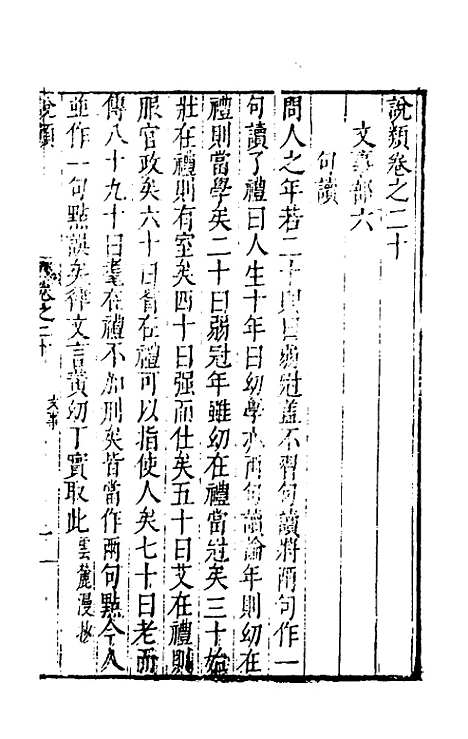 說類卷之二十
文事部六
句讀
問人之年若二十與曰弱冠蓋不習句讀將兩句作一
句讀了禮曰人生十年曰幼學亦兩句讀論年則幼在
禮則當學矣二十曰弱冠年雖幼在禮當冠矣三十始
壯在禮則有室矣四十曰强而仕矣五十曰艾在禮則
服官政矣六十曰耆在禮可以指使人矣七十曰老而
傳八十九十曰耄在禮不加刑矣皆當作兩句點今人
並作一句點誤矣律文言黃幼丁實取此雲麓漫抄
說類
卷之二十
文事
一